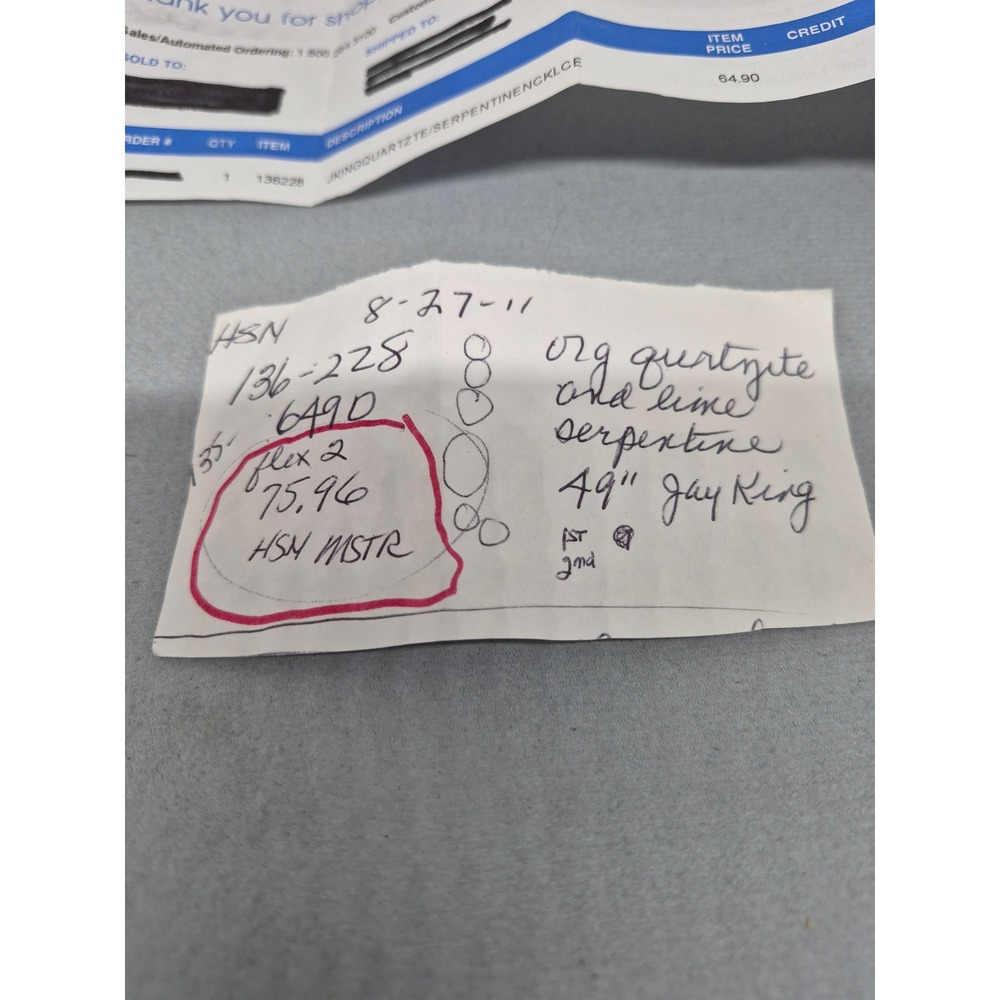 ank you for shop
Sales/Automated Ordering: 1.800
Custom
SOLD TO:
SHIPPED TO:
RDER # QTY ITEM DESCRIPTION ITEM PRICE CREDIT
1 136228 JKINGQUARTZTE/SERPENTINENCKLCE 64.90
HSN 8-27-11
136-228
6490
flex 2
75.96
HSN MSTR
org qurtzite
and lime
serpentine
49" Jay King
1ST
2nd